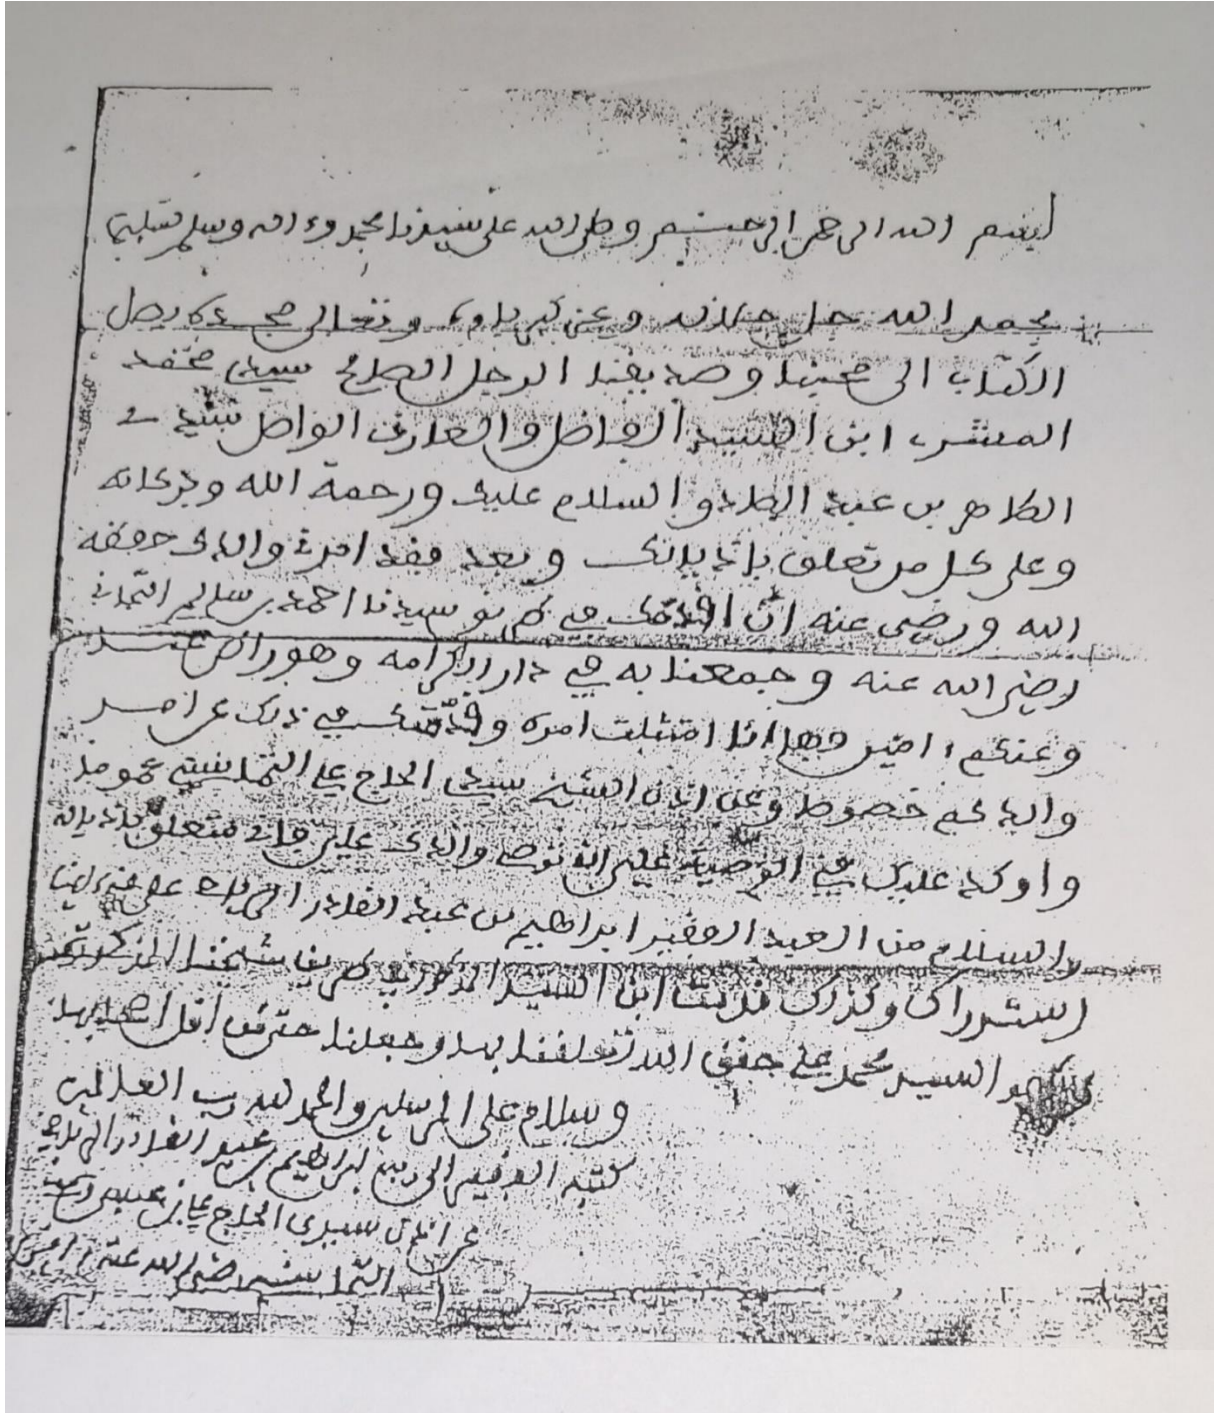 بسم الله الرحمن الرحيم وصلى الله على سيدنا محمد وءاله وسلم تسليما
بحمد الله جل جلاله وعز كبرياوه وتعالى مجده يصل
الكتاب الى محبنا وصديقنا الرجل الصالح سيدي محمد
ابن السيد الفاضل والعارف الواصل سيدي
الطاهر بن عبد الصادق السلام عليك ورحمة الله وبركاته
وعلى كل من تعلق باذيالك وبعد فقد امرني والدك حفظه
الله ورضي عنه ان اقدمك في طريق سيدنا احمد بن سالم التجاني
رضي الله عنه وجمعنا به في دار الكرامة وهو راض عنا
وعنكم ءامين فها انا امتثلت امره وقدمتك في ذلك عن امر
والدكم خصوصا وعن اذن الشيخ سيدي الحاج علي التماسيني عموما
واوكد عليك في الوصية على
والسلام من العبد الفقير ابراهيم بن عبد القادر
وكذلك ابن السيد المذكور في طريق شيخنا المذكور
السيد محمد حقق الله وجعلنا من اهل
وسلام على المرسلين والحمد لله رب العالمين
كتبه الفقير الى ربه ابراهيم بن عبد القادر
عن اذن سيدي الحاج علي بن عيسى
التماسيني رضي الله عنه ءامين